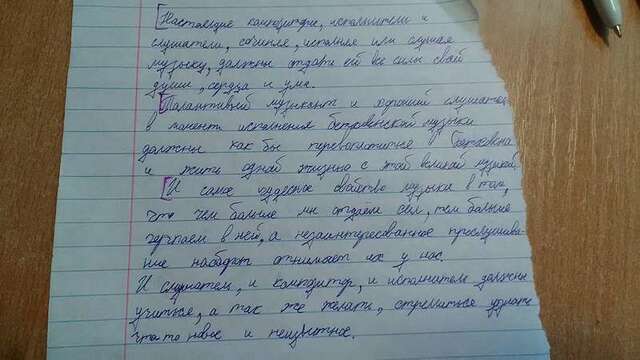 Настоящие композиторы, исполнители и
слушатели, сочиняя, исполняя или слушая
музыку, должны отдать ей все силы своей
души, сердца и ума.
Талантливый музыкант и хороший слушатель
в момент исполнения бетховенской музыки
должны как бы перевоплотится в Бетховена
и жить одной жизнью с этой великой музыкой.
И самое чудесное свойство музыки в том,
что чем больше мы отдаём сил, тем больше
черпаем в ней, а незаинтересованное прослушива-
ние наоборот отнимает их у нас.
И слушатель, и композитор, и исполнитель должны
учиться, а так же желать, стремиться узнать
что то новое и неизвестное.